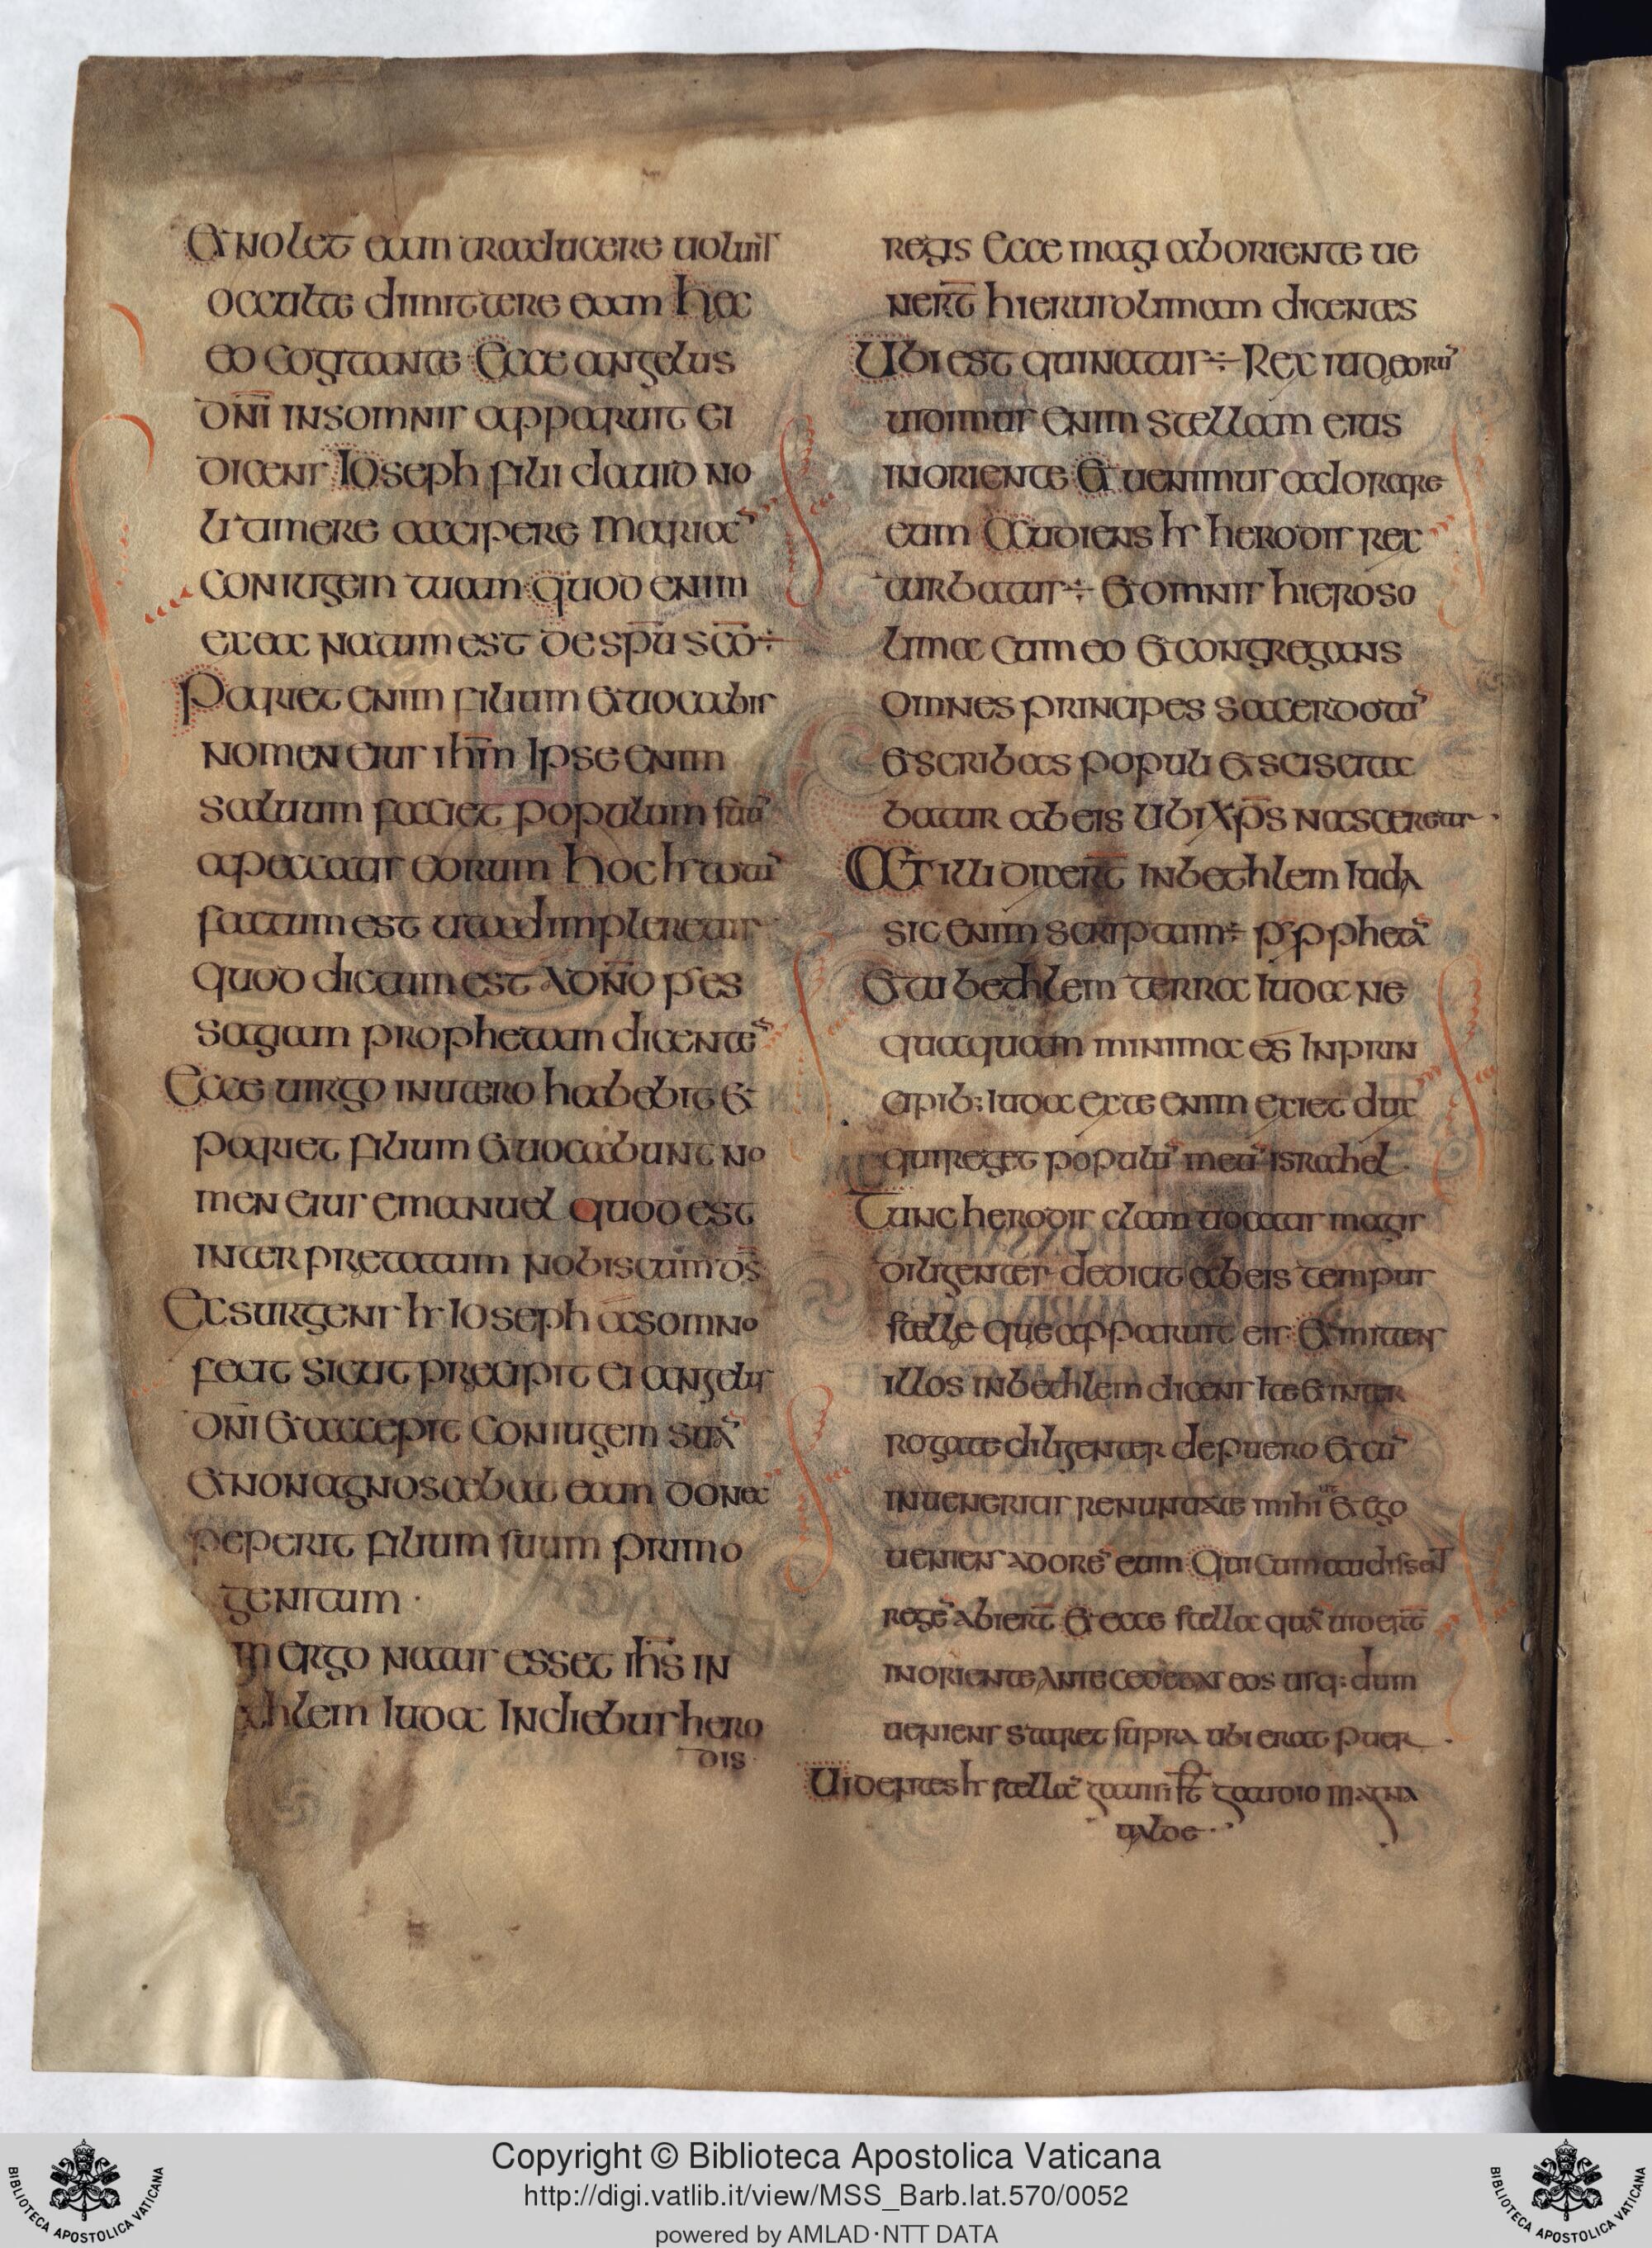 Et nolet eam traducere uoluit
occulte dimittere eam hec
eo cogitante Ecce angelus
dn̄i insomnis apparuit ei
dicens Ioseph filii dauid no
li timere accipere mariā
coniugem tuam quod enim
ex ea natum est de sp̄u sc̄o ÷
Pariet enim filium & uocabis
nomen eius ih̄m Ipse enim
saluum faciet populum suū
apeccatis eorum hoc hr totū
factum est ut adimpleretur
quod dictum est adn̄o p es
sagiam prophetam dicentē
Ecce uirgo inutero habebit &
pariet filium & uocabunt no
men eius emanuel quod est
interpretatum nobiscum d̄s
Exsurgens hr Ioseph asomno
fecit sicut precipit ei angelus
dn̄i & accepit coniugem suā
& non agnoscebat eam donec
peperit filium suum primo
genitum ·
m ergo natus esset ih̄s in
thlem Iuda In diebus hero
dis ·
regis Ecce magi aboriente ue
nert̄ hierusolimam dicentes
Ubi est qui natus ÷ Rex iudeorū
uidimus enim stellam eius
inoriente & uenimus adorare
eum Audiens hr herodis rex
turbatus ÷ & omnis hieroso
lima cum eo & congregans
omnes principes sacerdotū
& scribas populi & sciscita
batur ab eis Ubi xp̄s nasceretur ·
At illi dixert̄ Inbethlem Iuda
sic enim scriptum ÷ p pphetā
& tu bethlem terra Iuda ne
quaquam minima es In prin
cipib; Iuda ex te enim exiet dux
qui reget populū meū israhel
Tunc herodis clam uocatis magis
diligenter dedicit ab eis tempus
stelle que apparuit eis & mittens
illos inbethlem dicens Ite & inter
rogate diligenter de puero & cū
inueneritis renuntiate mihi ut & ego
ueniens adorē eum Qui cum audissent
regē abiert̄ & ecce stella quā uidert̄
inoriente antecedebat eos usq; dum
ueniens staret supra ubi erat puer ·
Uidentes hr stellā gauisi st̄ gaudio magna
ualde ·
Copyright © Biblioteca Apostolica Vaticana
http://digi.vatlib.it/view/MSS_Barb.lat.570/0052
powered by AMLAD·NTT DATA
BIBLIOTECA APOSTOLICA VATICANA
BIBLIOTECA APOSTOLICA VATICANA